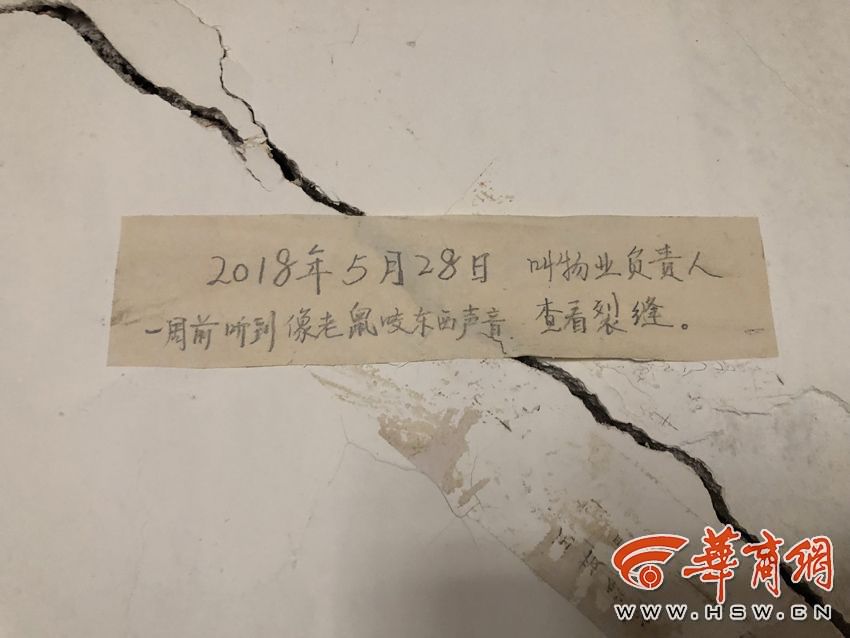 2018年5月28日 叫物业负责人
一周前听到像老鼠咬东西声音 查看裂缝。
華商網
WWW.HSW.CN